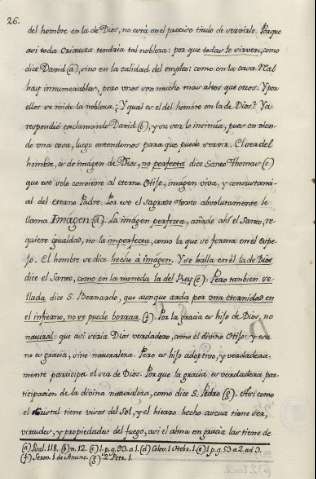 26.
del hombre en la de Dios, no seria en el preciso titulo de servirle. Porque
asi toda Criatura tendria tal nobleza: por que todas le sirven, como
dice David (a), sino en la calidad del empleo: como en la casa Real
hay innumerables, pero unos son mucho mas altos que otros. Y por
ellos se mide la nobleza. ¿Y qual es el del hombre en la de Dios? Ya
respondió exclamando David (b), y su voz lo insinúa, pues en
de una cosa, luego entendemos para que puede servir. El ser del
hombre, es de imagen de Dios, no perfecta dice Santo Thomas (c)
que eso solo conviene al eterno Hijo, imagen viva, y consustanci-
al del eterno Padre. Por eso el Sagrado texto absolutamente le
llama Imagen (d). La imagen perfecta, añade alli el Santo, re-
quiere igualdad, no la imperfecta, como la que se forma en el Espe-
jo. El hombre se dice hecho à imagen. Y se halla en él la de Dios
dice el Santo, como en la moneda la del Rey (e). Pero tambien se-
llada dice S. Bernardo, que aunque arda por una eternidad en
el infierno, no se puede borrar (f). Por la gracia es hijo de Dios, no
natural: que asi seria Dios verdadero, como el divino Hijo: y esa
no es gracia, sino naturaleza. Pero es hijo adoptivo, y verdadera-
mente participa el ser de Dios. Por que la gracia es verdadera par-
ticipacion de la divina naturaleza, como dice S. Pedro (g). Asi como
el Cristal tiene visos del Sol, y el hierro hecho ascua tiene
y propiedades del fuego, asi el alma en gracia las tiene de
(a) Psal. 118. (b) 12. (c) 1. p. q. 93. a. 1. (d) Colos. 1. Hebr. 1. (e) 1. p. q. 93. a. 2. ad 3.
(f) Serm. 1. de Annunc. (g) 2. Petr. 1.